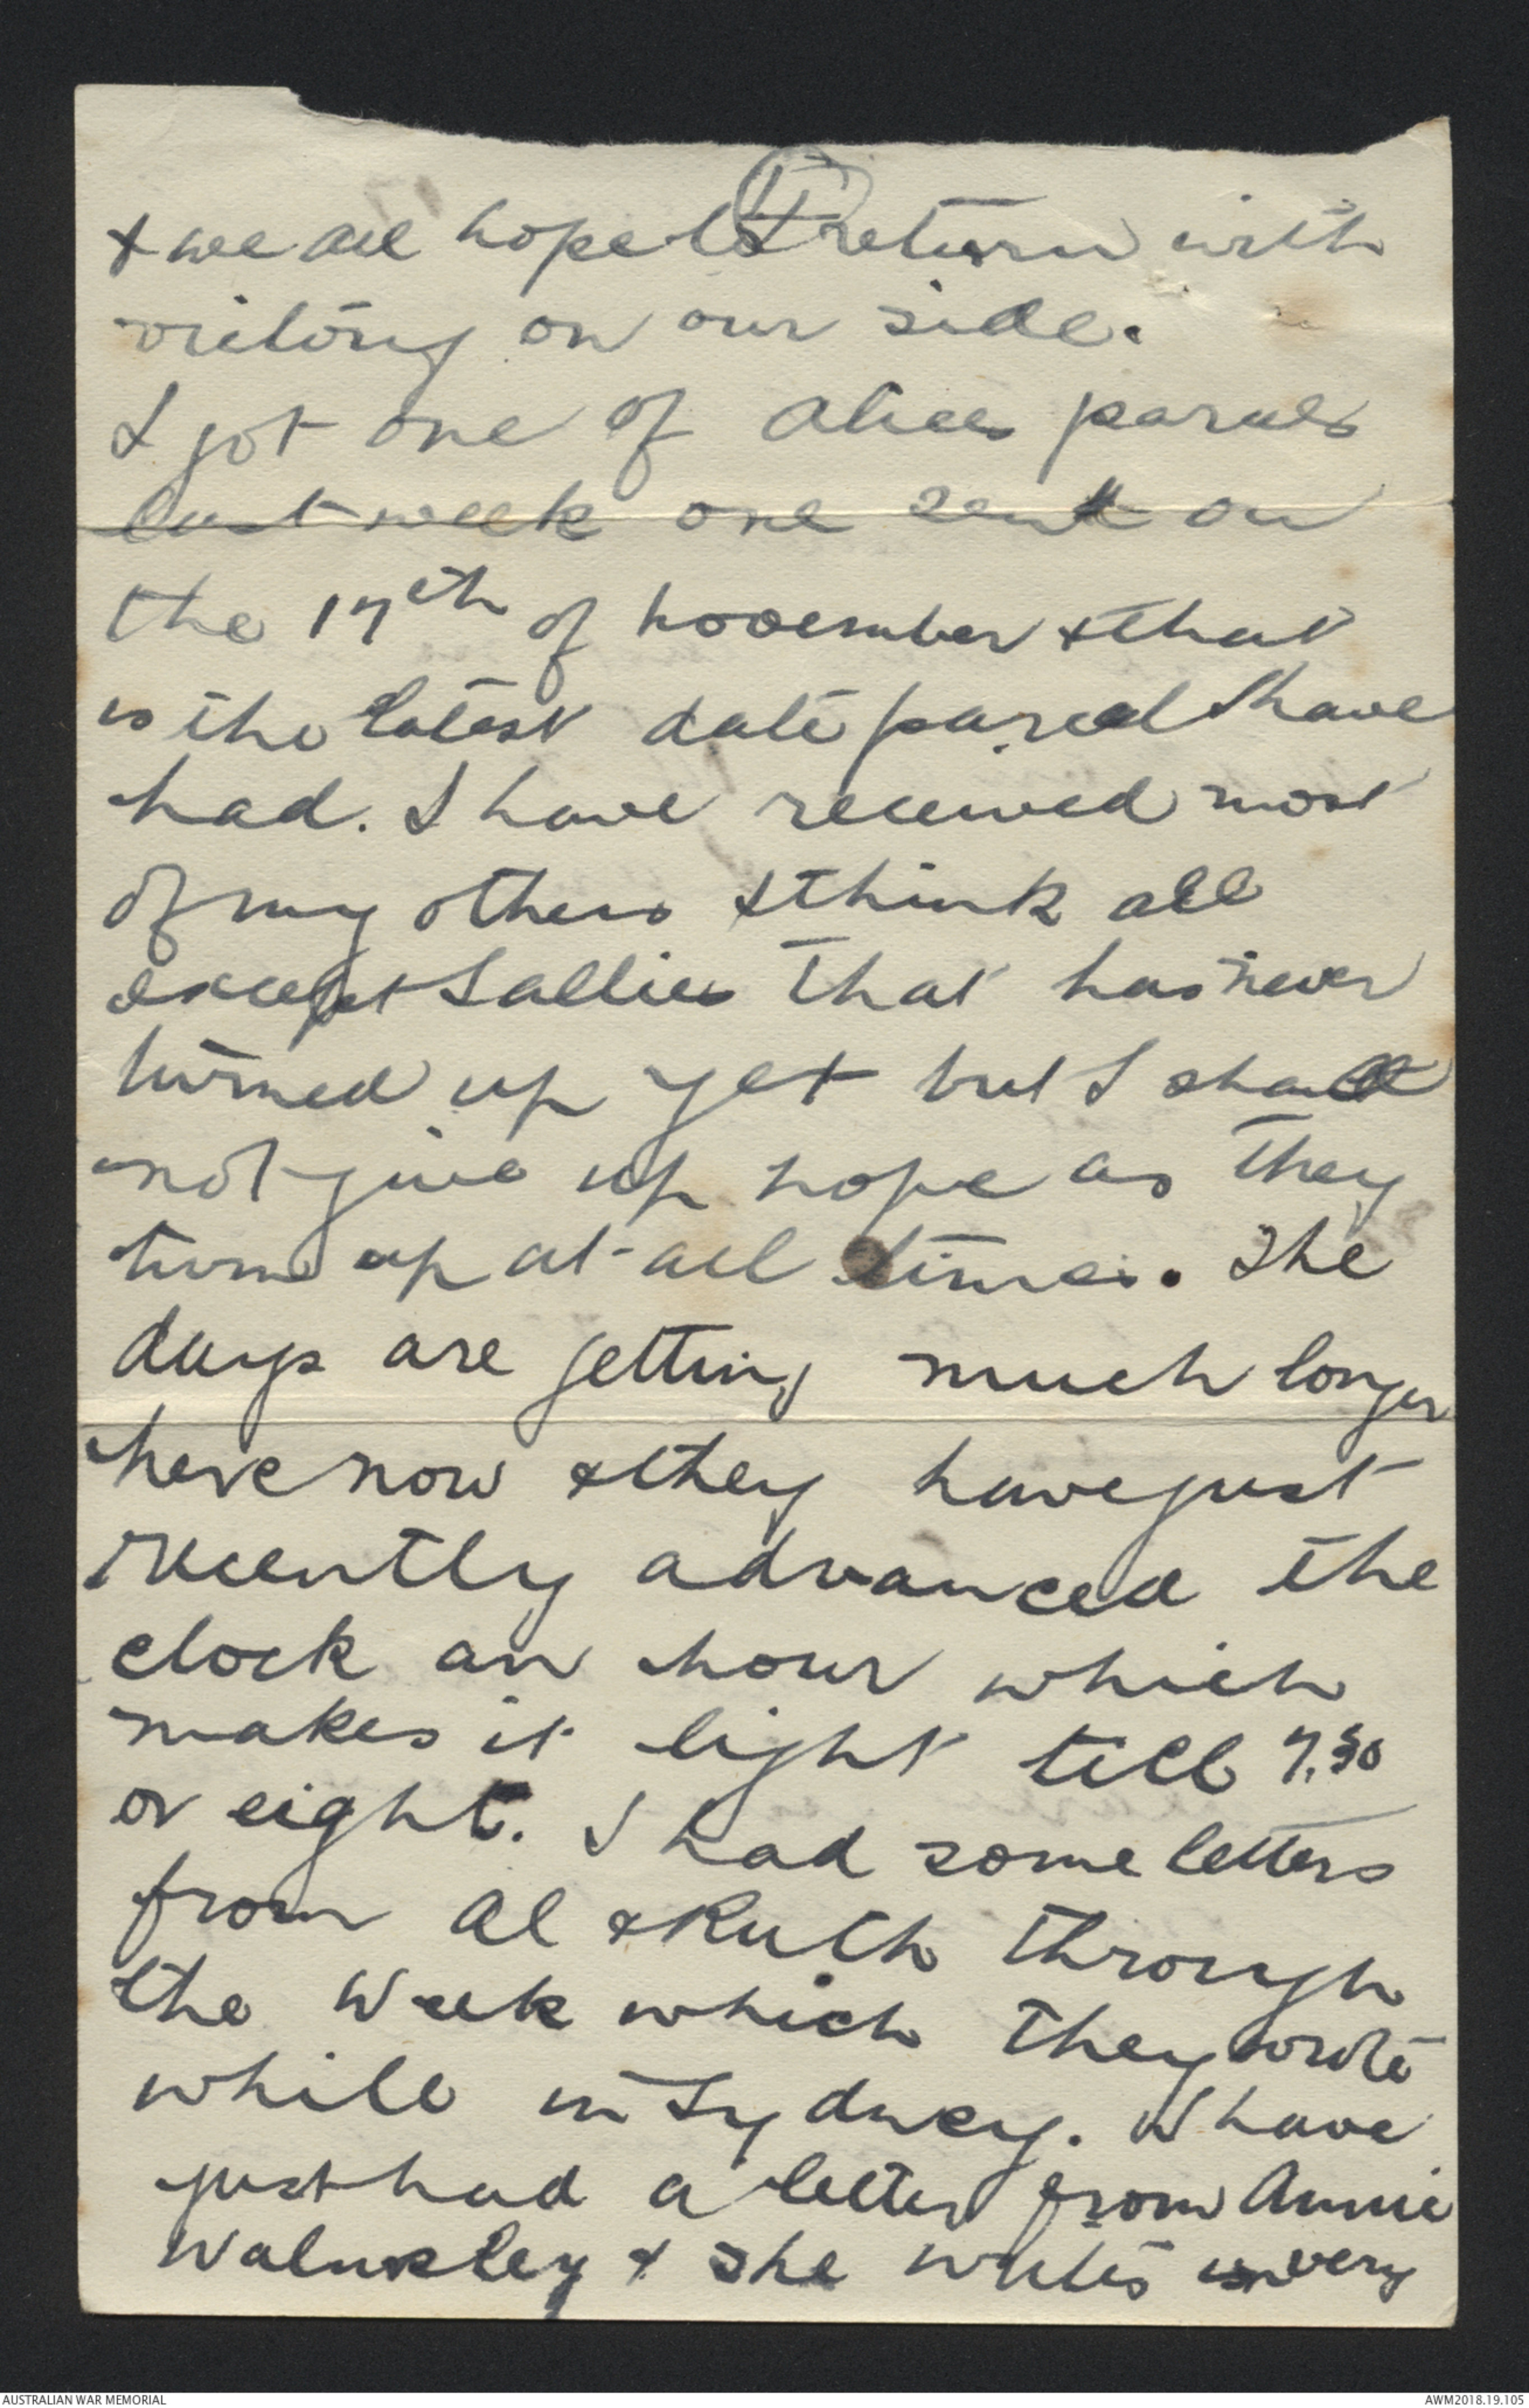 & we all hope to return with
victory on our side.
I got one of Alices parcels
last week one sent on
the 17th of November & that
is the latest date parcel I have
had. I have received most
of my others & think all
except Sallies that has never
turned up yet but I shall
not give up hope as they
turn up at all times. The
days are getting much longer
here now & they have just
recently advanced the
clock an hour which
makes it light till 7.30
or eight. I had some letters
from Al & Ruth through
the week which they wrote
while in Sydney. I have
just had a letter from Annie
& she writes very
AUSTRALIAN WAR MEMORIAL
AWM2018.19.105